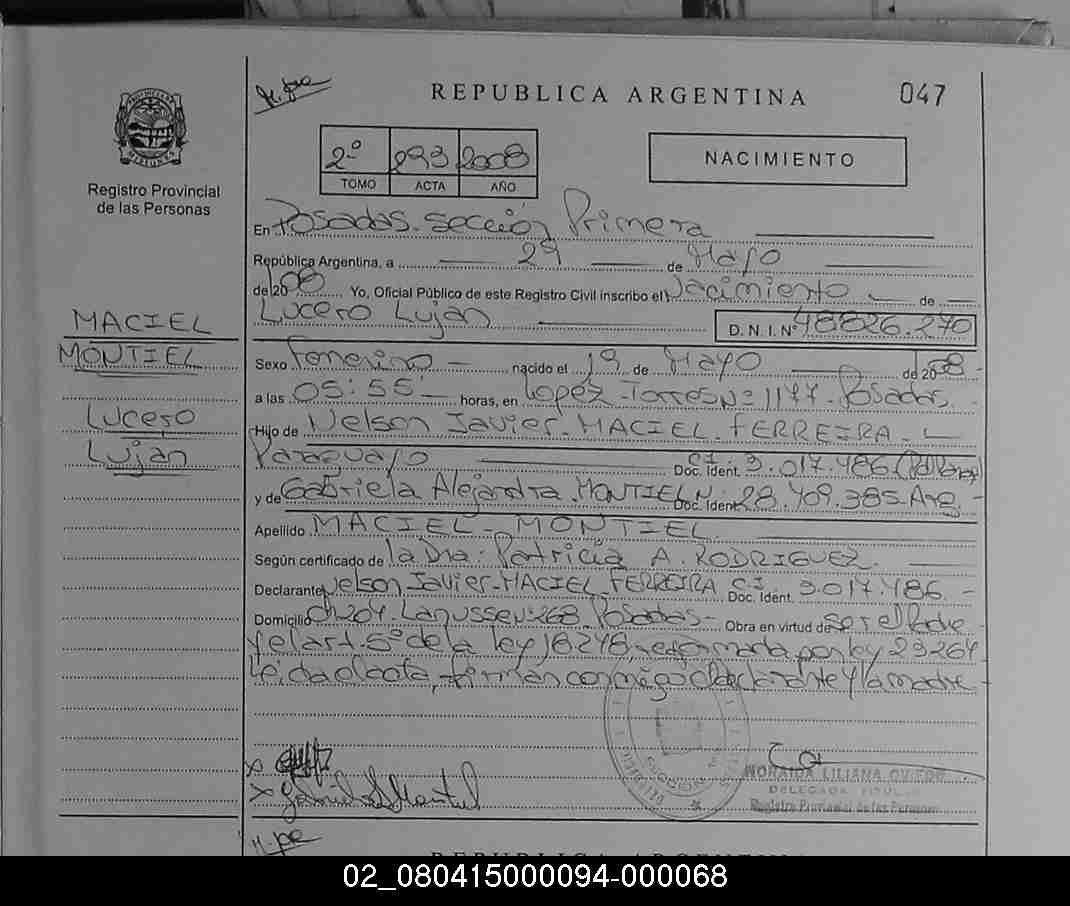 REPUBLICA ARGENTINA 047
2º 293 2008
TOMO ACTA AÑO
NACIMIENTO
Registro Provincial
de las Personas
En Posadas. sección Primera
República Argentina, a 29 de Mayo
de 2008 Yo, Oficial Público de este Registro Civil inscribo el Nacimiento de
Lucero Luján D. N. I. Nº 48826.270
MACIEL
MONTIEL
Lucero
Luján
Sexo Femenino nacido el 19 de Mayo de 2008
a las 05:55 horas, en López Torres Nº 1177. Posadas.
Hijo de Nelson Javier. MACIEL. FERREIRA.
Paraguayo C.I. Doc. Ident. 3.017.486
y de Gabriela Alejandra. MONTIEL Doc. Ident. 28.409.385. Arg.
Apellido MACIEL - MONTIEL
Según certificado de la Dra: Patricia A. RODRIGUEZ.
Declarante Nelson Javier. MACIEL. FERREIRA C.I. Doc. Ident. 3.017.486
Domicilio Ch204 Lanusse Nº 268. Posadas Obra en virtud de ser el Padre
y el art. 5º de la ley 18248, reformada por ley 23264
Leída el acta, firman conmigo el declarante y la madre
NORAIDA LILIANA OVIEDO
DELEGADA TITULAR
Registro Provincial de las Personas
REPUBLICA ARGENTINA
02_080415000094-000068